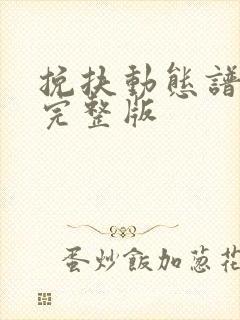 挽扶動態譜
完整版
蛋炒飯加蔥花